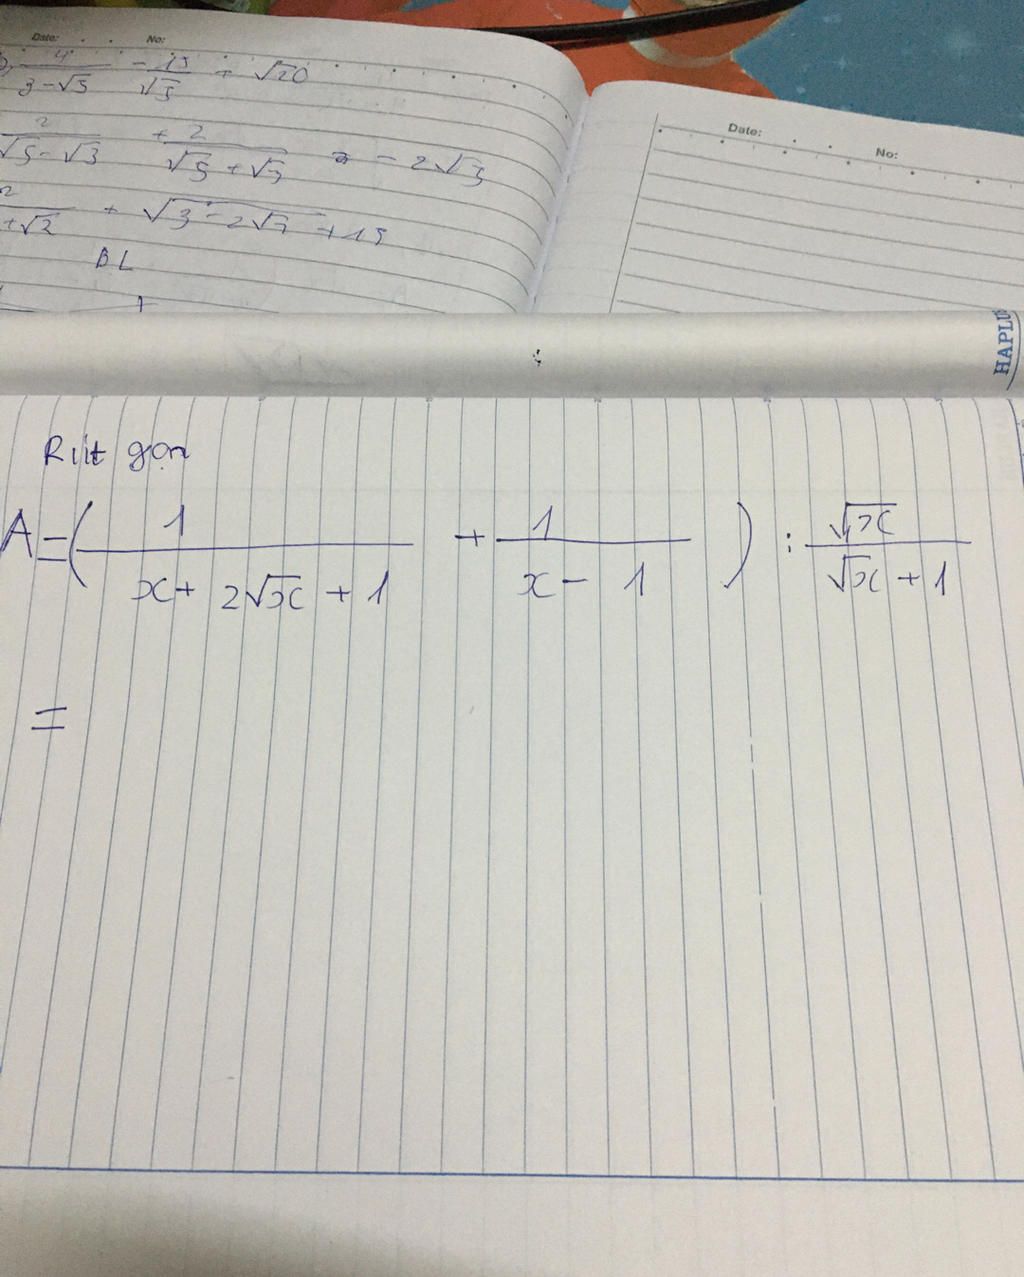 Date: No:
4/(3-√5) - 15/√5 + √20
2/(√5-√3) + 2/(√5+√3) - 2√3
+√2 + √3-2√ +15
BL
Date: No:
HAPLU
Rút gọn
A=(1/(x+2√x+1) + 1/(x-1)) : √x/(√x+1)
=